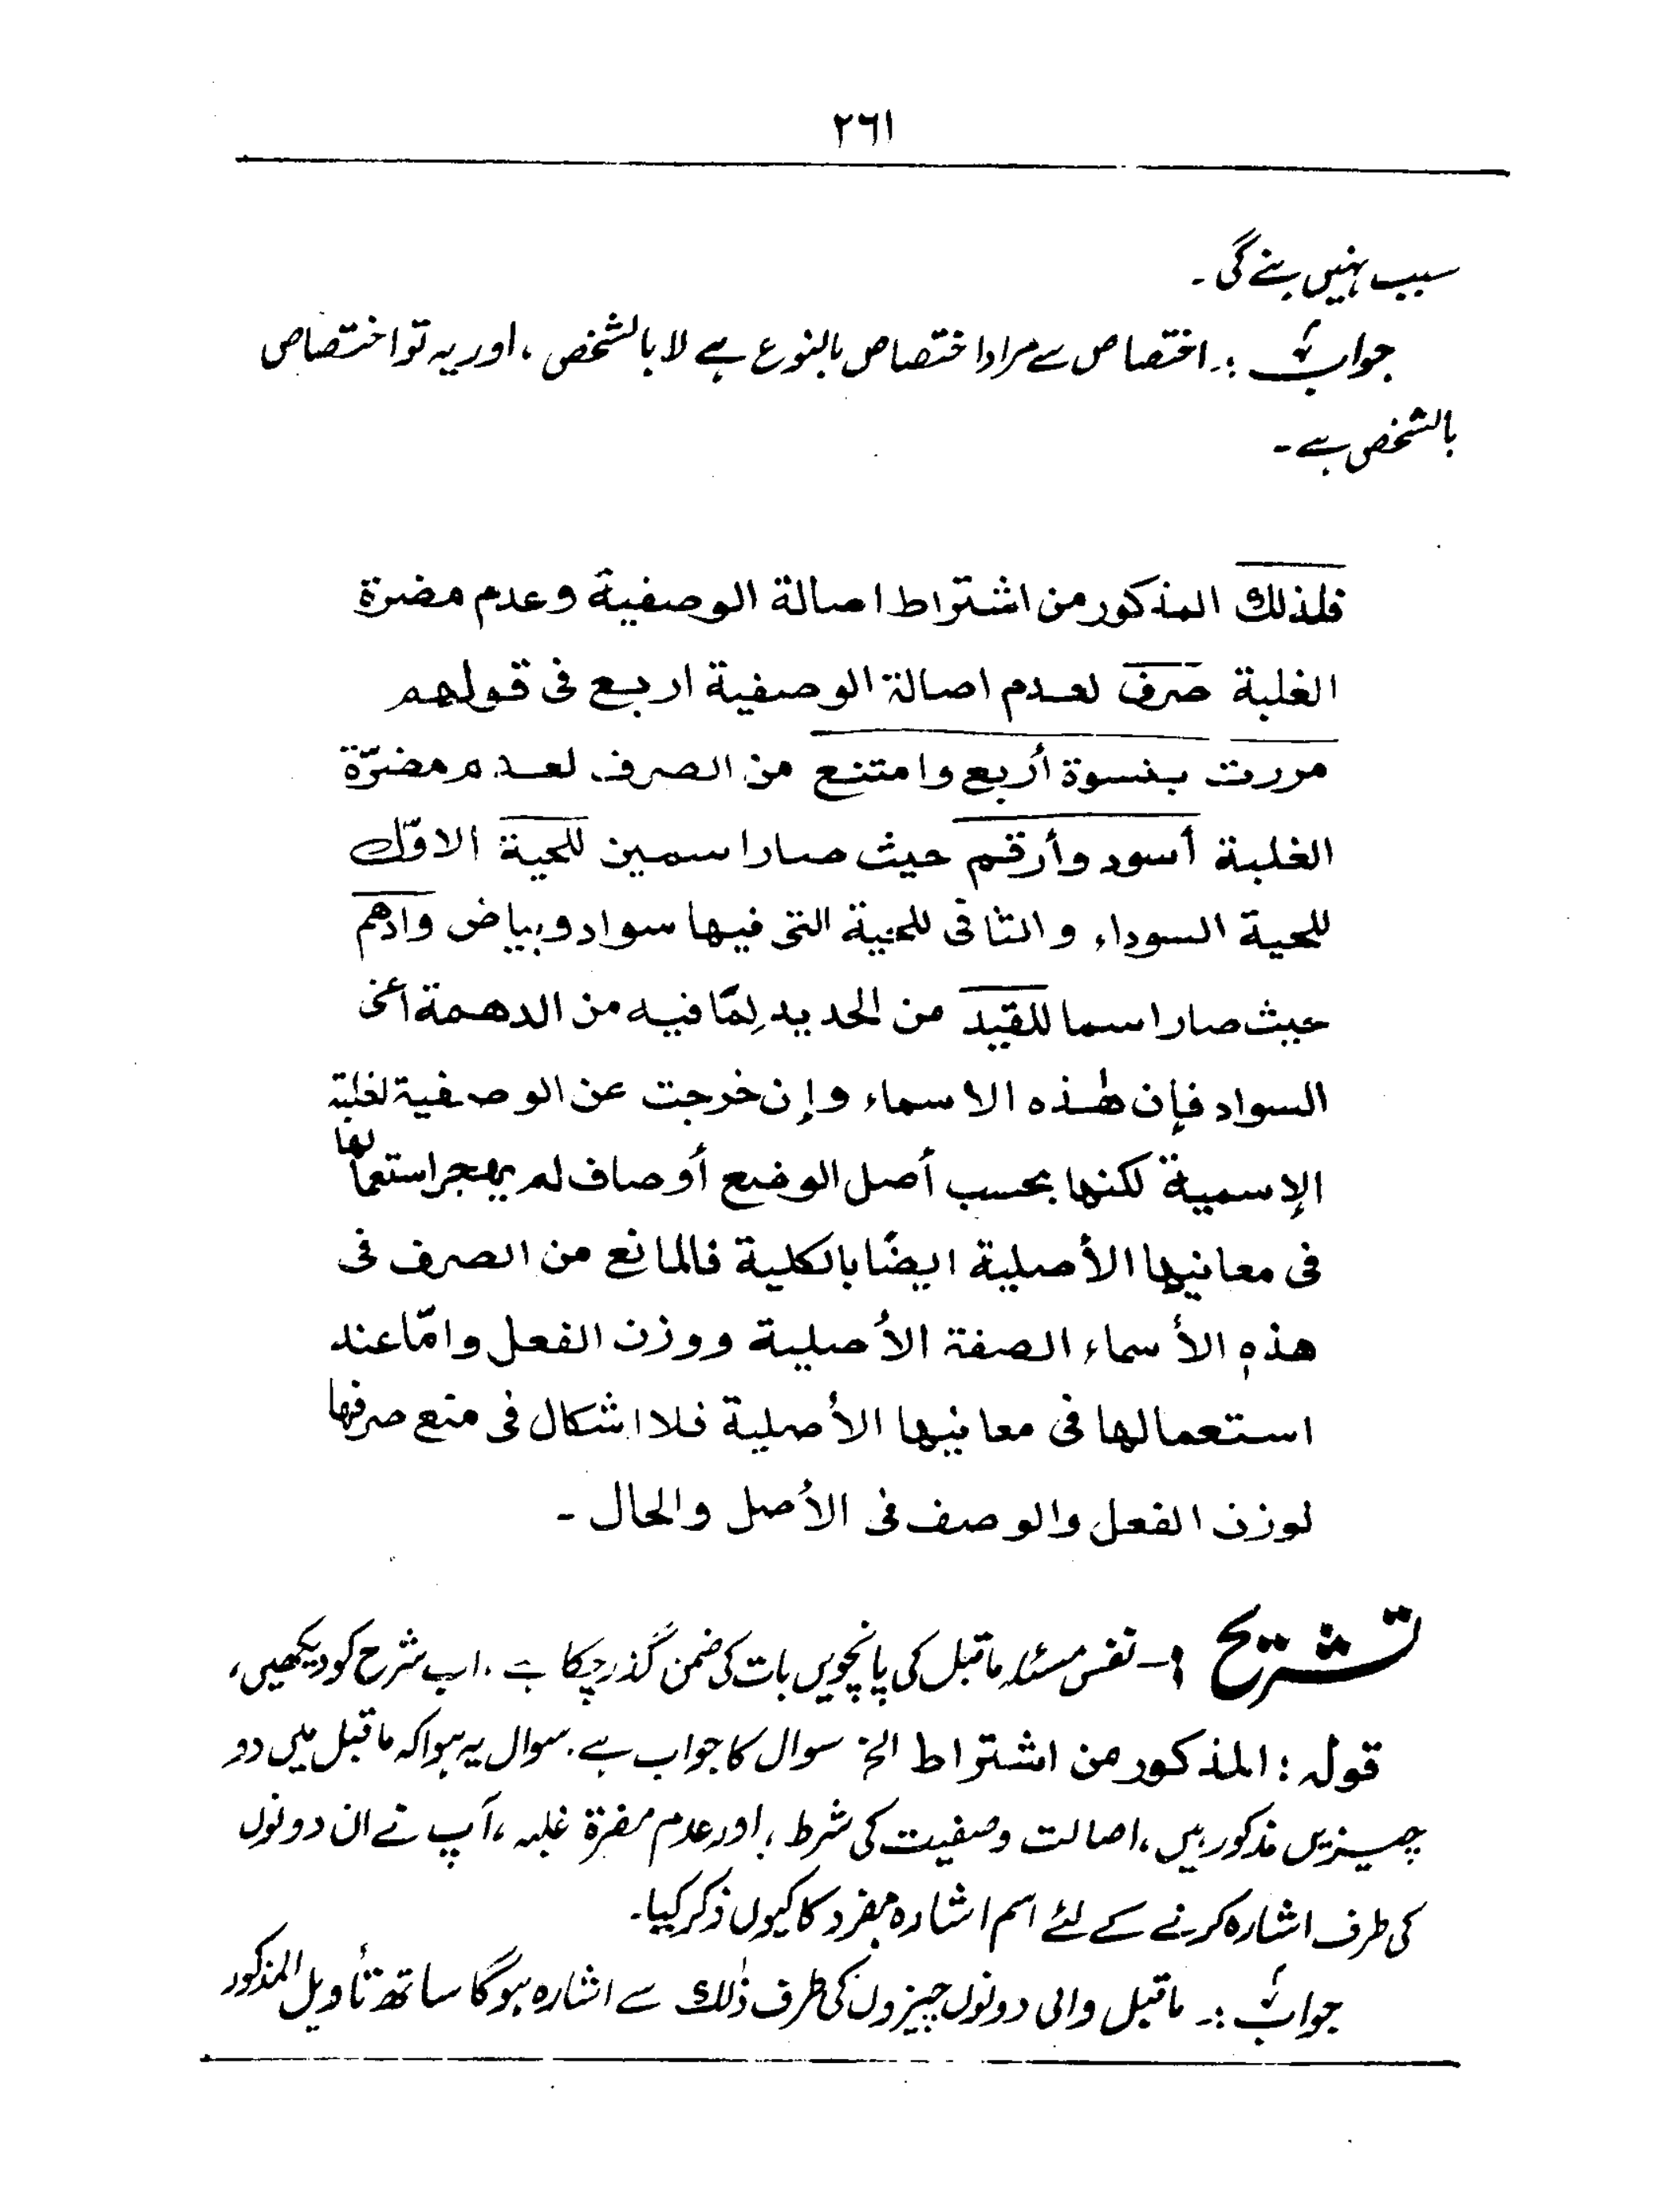 ٢٦١
سبب نہیں بنے گی۔
جواب :۔ اختصاص سے مراد اختصاص بالنوع ہے لا بالشخص ، اور یہ تو اختصاص
بالشخص ہے۔
فلذلك المذكور من اشتراط اصالة الوصفية وعدم مضرة
الغلبة صرف لعدم اصالة الوصفية اربع فى قولهم
مررت بنسوة أربع وامتنع من الصرف لعدم مضرّة
الغلبة أسود وأرقم حيث صارا سمين للحية الاوّل
للحية السوداء والثانى للحية التى فيها سواد وبياض وادهم
حيث صار اسما للقيد من الحديد لِمَا فيه من الدهمة أعنى
السواد فإن هٰذه الاسماء وإن خرجت عن الوصفية لغلبة
الإسمية لكنها بحسب أصل الوضع أوصاف لم يهجر استعمالها
فى معانيها الأصلية ايضًا بالكلية فالمانع من الصرف فى
هذهٖ الأسماء الصفة الأصلية ووزن الفعل وامّا عند
استعمالها فى معانيها الأصلية فلا اشكال فى منع صرفها
لوزن الفعل والوصف فى الأصل والحال ۔
تشریح :۔ نفس مسئلہ ماقبل کی پانچویں بات کی ضمن گذر چکا ہے ۔ اب شرح کو دیکھیں،
قولہ : المذكور من اشتراط الخ سوال کا جواب ہے۔ سوال یہ ہوا کہ ماقبل میں دو
چیزیں مذکور ہیں ، اصالت وصفیت کی شرط ، اور عدم مضرۃ غلبہ ، آپ نے ان دونوں
کی طرف اشارہ کرنے کے لئے اسم اشارہ مفرد کا کیوں ذکر کیا۔
جواب :۔ ماقبل والی دونوں چیزوں کی طرف ذٰلك سے اشارہ ہوگا ساتھ تأویل المذکور